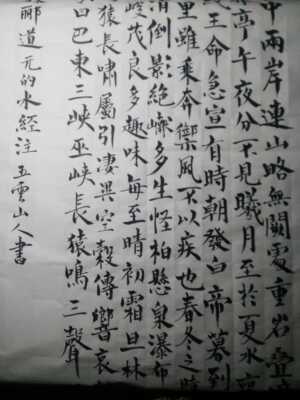 中兩岸連山略無闕處重岩疊
亭午夜分不見曦月至於夏水
王命急宣有時朝發白帝暮到
里雖乘奔禦風不以疾也春冬之時
倒影絕巘多生怪柏懸泉瀑布
峻茂良多趣味每至晴初霜旦林
猿長嘯屬引淒異空穀傳響哀
曰巴東三峽巫峽長猿鳴三聲
酈道元的水經注五雲山人書